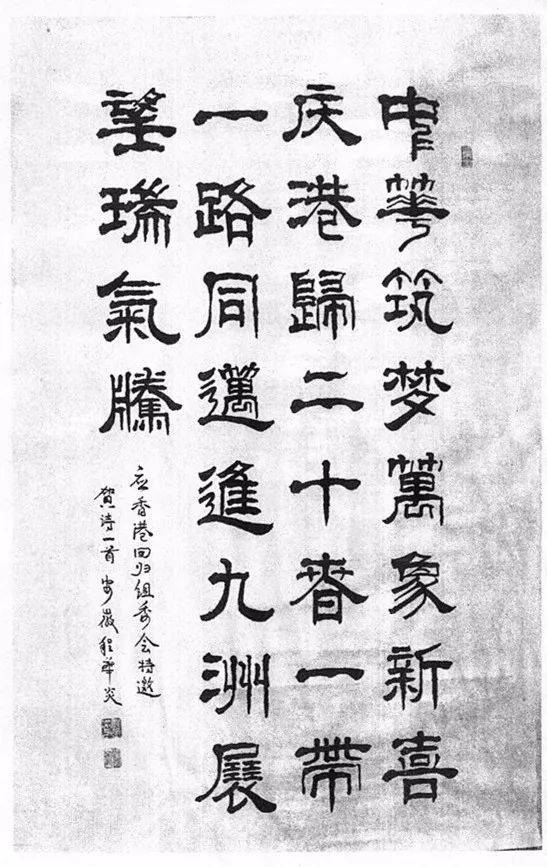 中華筑梦萬象新喜
庆港歸二十春一帶
一路同邁進九洲展
望瑞氣騰
应香港回归组委会特邀
贺诗一首 安徽程華炎